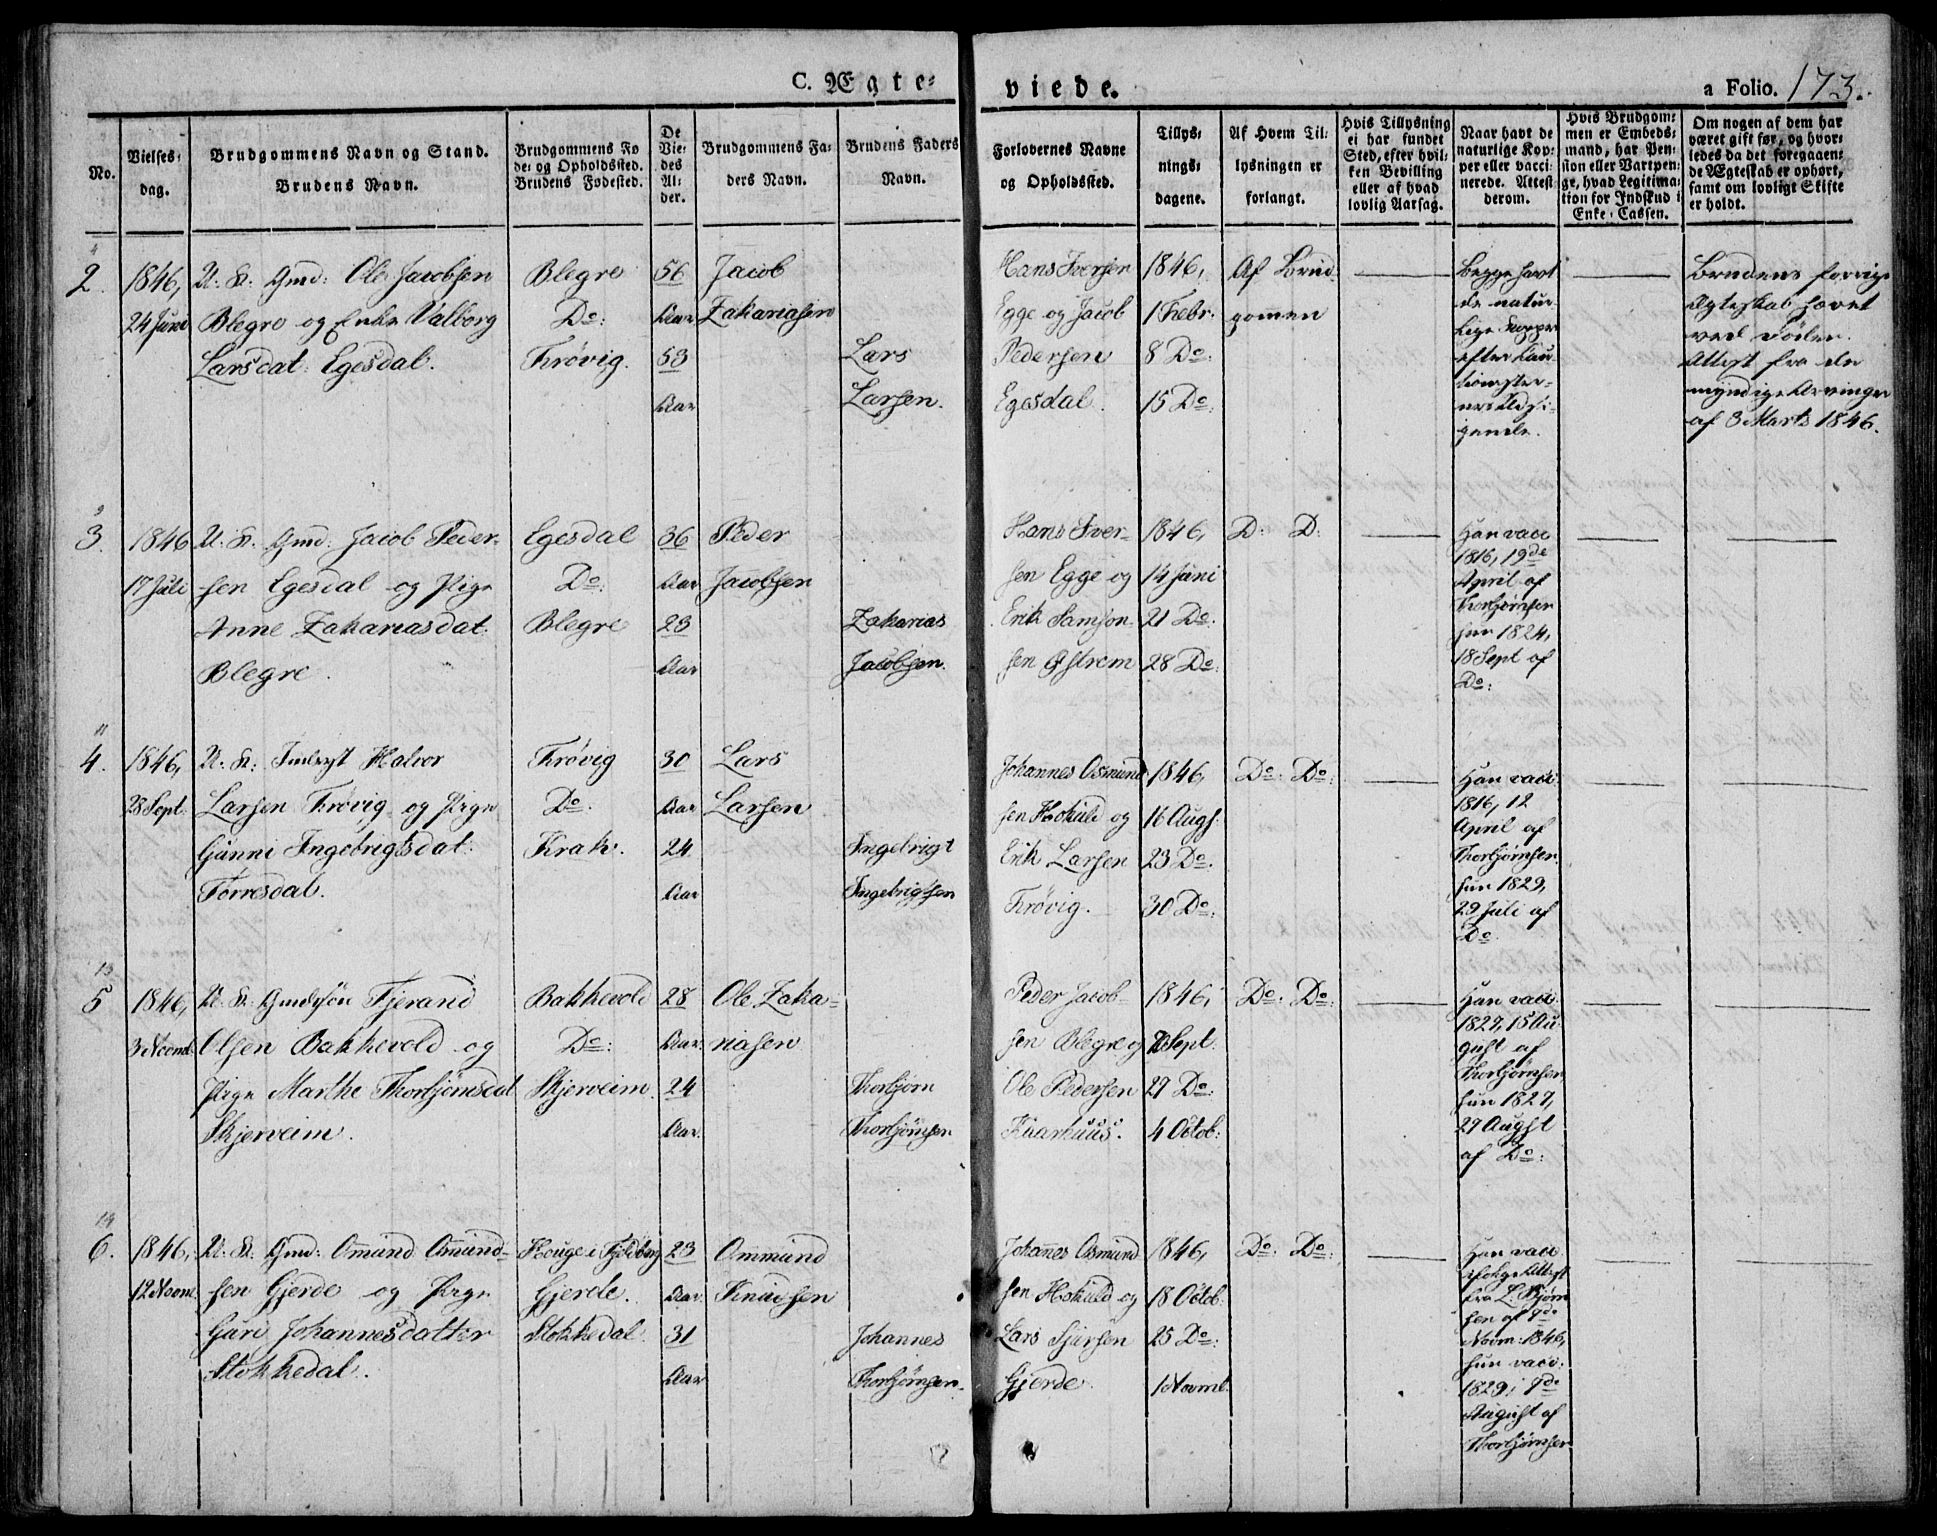 C. Ægte-
viede.
a Folio. 173.
No.
Vielses-
dag.
Brudgommens Navn og Stand.
Brudens Navn.
Brudgommens Fø
de- og Opholdssted.
Brudens Fødested.
De
Vie-
des
Al-
der.
Brudgommens Fa-
ders Navn.
Brudens Faders
Navn.
Forlovernes Navne
og Opholdssted.
Tillys-
nings-
dagene.
Af Hvem Til-
lysningen er
forlangt.
Hvis Tillysning
ei har fundet
Sted, efter hvil-
ken Bevilling
eller af hvad
lovlig Aarsag.
Naar havt de
naturlige Kop-
per eller vacci-
nerede. Attest
derom.
Hvis Brudgom-
men er Embeds-
mand, har Pen-
sion eller Vartpen-
ge, hvad Legitima-
tion for Indskud i
Enke-Cassen.
Om nogen af dem har
været gift før, og hvor-
ledes da det foregaaen-
de Ægteskab er ophørt,
samt om lovligt Skifte
er holdt.
4
2.
1846,
24 Juni
U. K. Gmd: Ole Jacobsen
Blegre og Enke Valborg
Larsdat: Egesdal.
Blegre
Do:
Frøvig.
56
Aar
53
Aar
Jacob
Zakariasen
Lars
Larsen.
Hans Iversen
Egge og Jacob
Pedersen
Egesdal.
1846,
1 Febr:
8 Do:
15 Do:
Af Brud
gommen
Begge havt
de natur-
lige Kopper
efter Cau-
tionister-
nes Udsi-
gende.
Brudens forrige
Ægteskab hævet
ved Døden.
Attest fra de
myndige Arvinger
af 3 Marts 1846.
9
3.
1846
17 Juli
U. K. Gmd: Jacob Peder-
sen Egesdal og Pige
Anne Zakariasdat:
Blegre.
Egesdal
Do:
Blegre
36
Aar
23
Aar
Peder
Jacobsen
Zakarias
Jacobsen.
Hans Iver-
sen Egge og
Erik Samson-
sen Østrem
1846,
14 Juni
21 Do:
28 Do:
D: D:
Han vacc
1816, 19de
April af
Thorbjørnsen
hun 1824,
18 Sept af
Do:
11
4.
1846,
28 Sept:
U. K: Inderst Halvor
Larsen Frøvig og Pige
Gunni Ingebrigtsdat:
Torresdal.
Frøvig
Do.
Krak.
30
Aar
24
Aar
Lars
Larsen
Ingebrigt
Ingebrigtsen
Johannes Osmund
sen Hokuld og
Erik Larsen
Frøvig.
1846,
16 Augs.
23 Do.
30 Do:
Do: Do:
Han vacc:
1816, 12
April af
Thorbjørnsen
hun 1829,
29 Juli af
Do.
13
5
1846,
3 Novmb:
U. K: Gmdssøn Tjerand
Olsen Bakkevold og
Pige Marthe Thorbjørnsdat
Skjerveim.
Bakkevold
Do:
Skjerveim.
28
Aar.
24
Aar.
Ole Zaka-
riasen
Thorbjørn
Thorbjørnsen
Peder Jacob-
sen Blegre og
Ole Pedersen
Kaarhuus.
1846,
Sept:
27 Do:
4 Octob:
Do: Do:
Han vacc:
1827, 15 Au-
gust af
Thorbjørnsen
hun 1827,
27 August
af Do:
14
6.
1846,
12 Novmb.
U. K: Gmd: Omund Omund-
sen Gjerde og Pige
Guri Johannesdatter
Stokkedal.
Houge i Fjeldberg
Gjerde.
Stokkedal
23
Aar.
31
Aar
Ommund
Knudsen
Johannes
Thorbjørnsen.
Johannes Osmund
sen Hokuld og
Lars Sjursen
Gjerde.
1846,
18 Octob:
25 Do:
1 Novmb.
Do: Do:
Han vacc.
ifølge Attest
fra L. Bjørn
sen af 9de
Novm: 1846,
hun vacc:
1829, 9de
August af
Thorbjørnsen